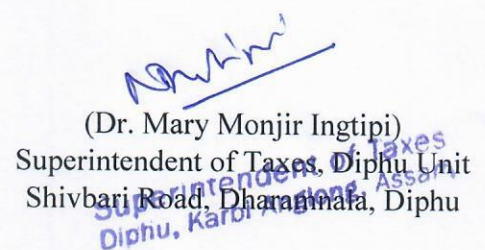 (Dr. Mary Monjir Ingtipi)
Superintendent of Taxes, Diphu Unit
Shivbari Road, Dharamnala, Diphu
Superintendent of Taxes
Diphu, Karbi Anglong, Assam